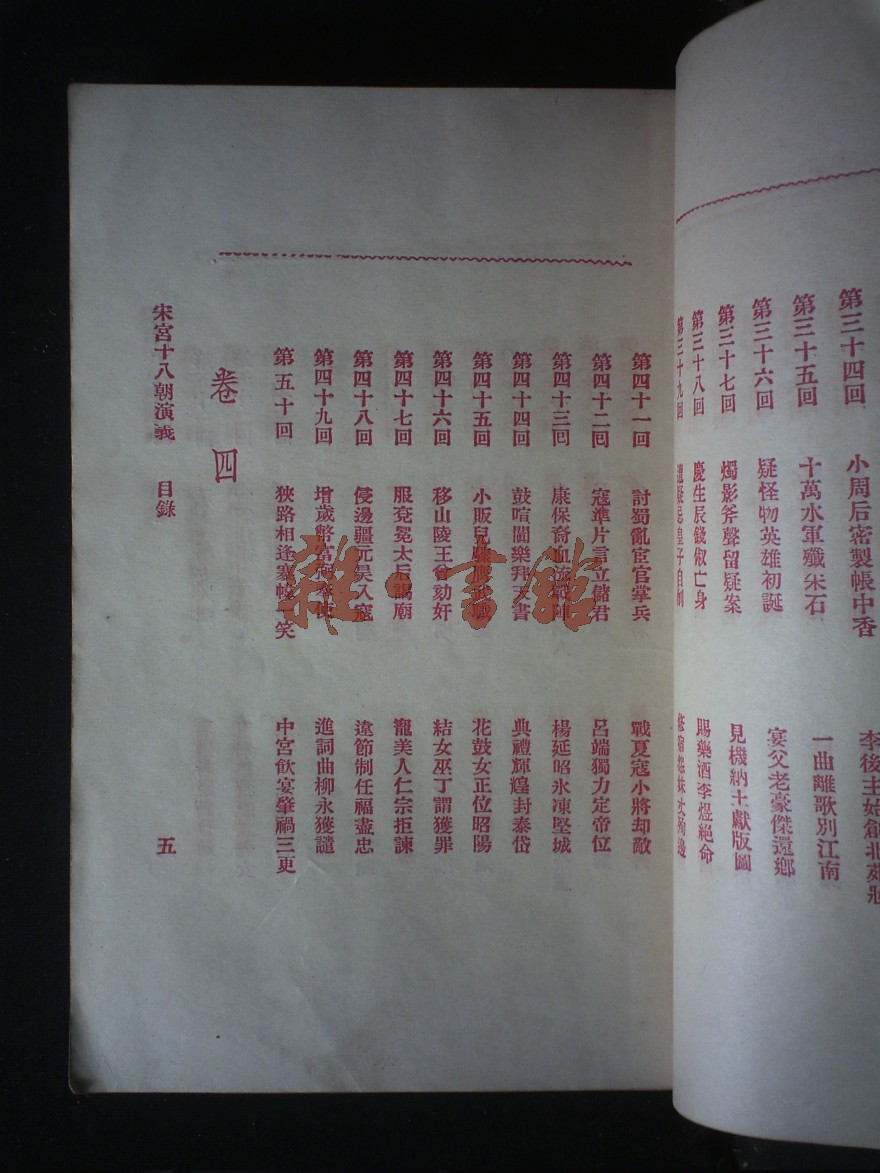 第三十四回 小周后密製帳中香 李後主始創北苑妝
第三十五回 十萬水軍殲采石 一曲離歌別江南
第三十六回 疑怪物英雄初誕 宴父老豪傑還鄉
第三十七回 燭影斧聲留疑案 見機納土獻版圖
第三十八回 慶生辰錢俶亡身 賜藥酒李煜絕命
第三十九回
第四十一回 討蜀亂宦官掌兵 戰夏寇小將却敵
第四十二回 寇準片言立儲君 呂端獨力定帝位
第四十三回 康保裔血流 楊延昭氷凍堅城
第四十四回 鼓喧闐樂拜天書 典禮輝煌封泰岱
第四十五回 小販兒 花鼓女正位昭陽
第四十六回 移山陵王曾劾奸 結女巫丁謂獲罪
第四十七回 服兗冕太后謁廟 寵美人仁宗拒諫
第四十八回 侵邊疆元昊入寇 違節制任福盡忠
第四十九回 增歲幣富 進詞曲柳永獲譴
第五十回 狹路相逢 一笑 中宮飲宴肇禍三更
卷四
宋宮十八朝演義 目錄 五
雜·書館